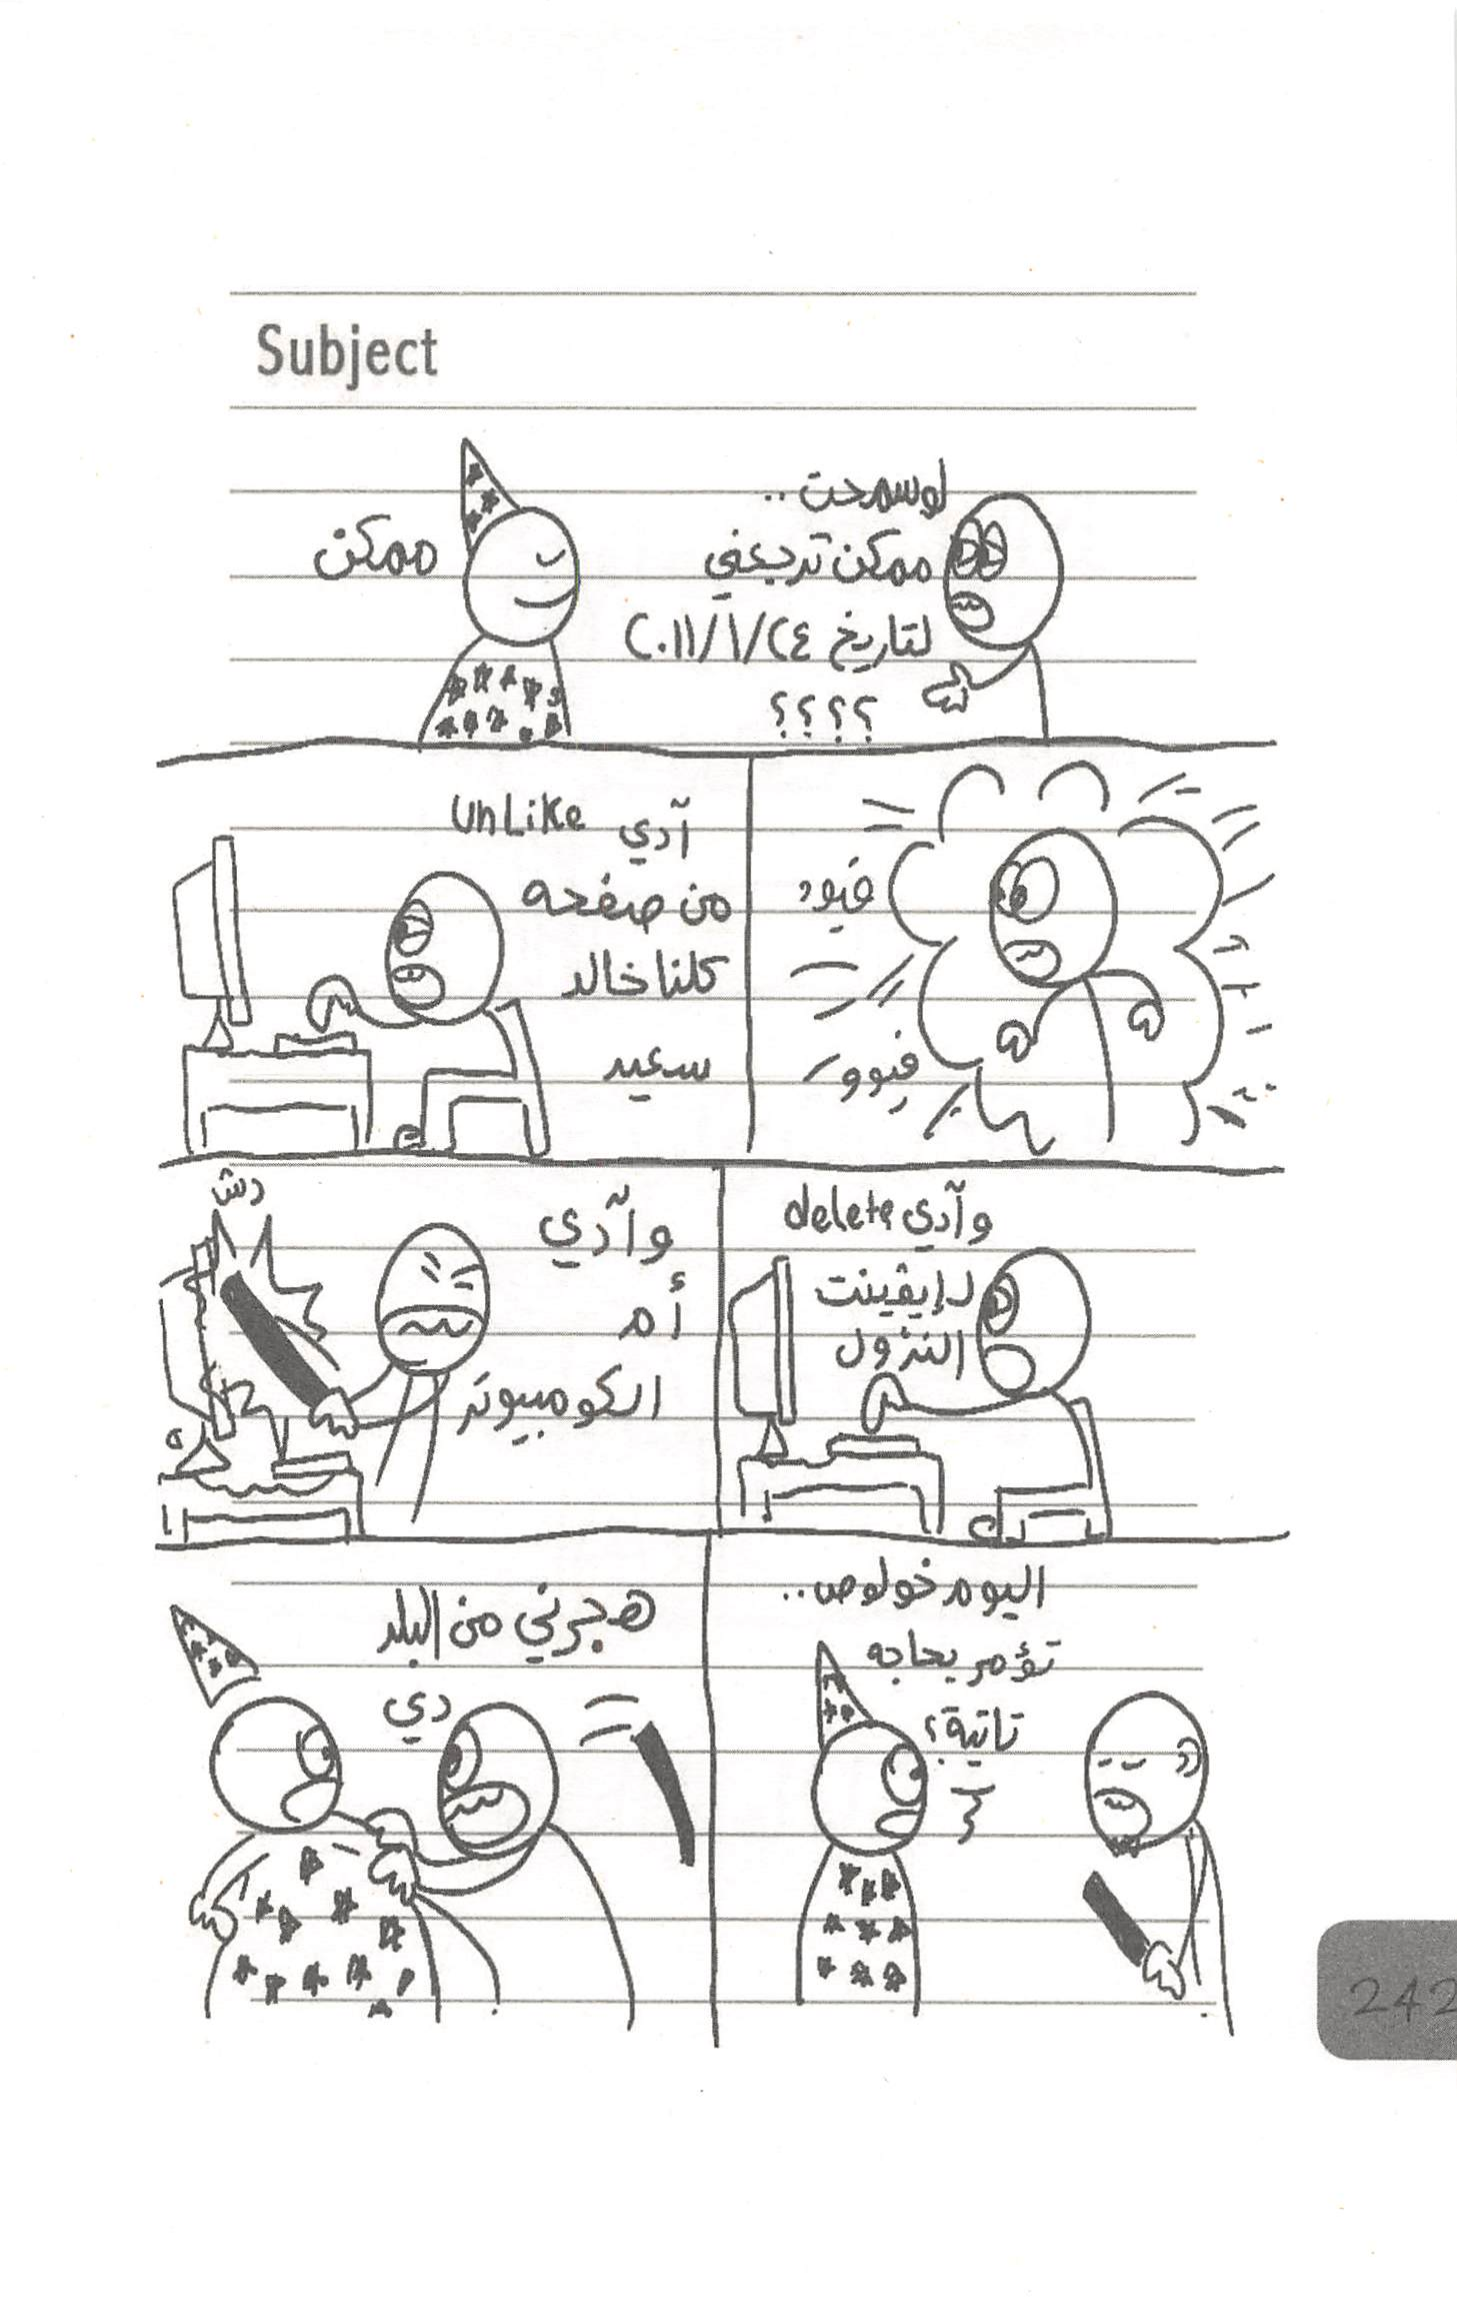 Subject
لو سمحت..
ممكن ترجعني
لتاريخ ٢٠١١/١/٢٤
؟؟؟؟
ممكن
فيوو
فيووو
آدي unLike
من صفحه
كلنا خالد
سعيد
وآدي delete
لإيڤينت
النزول
وآدي
أم
الكومبيوتر
دش
اليوم خولوص..
تؤمر بحاجه
تانية؟
هجرني من البلد
دي
242